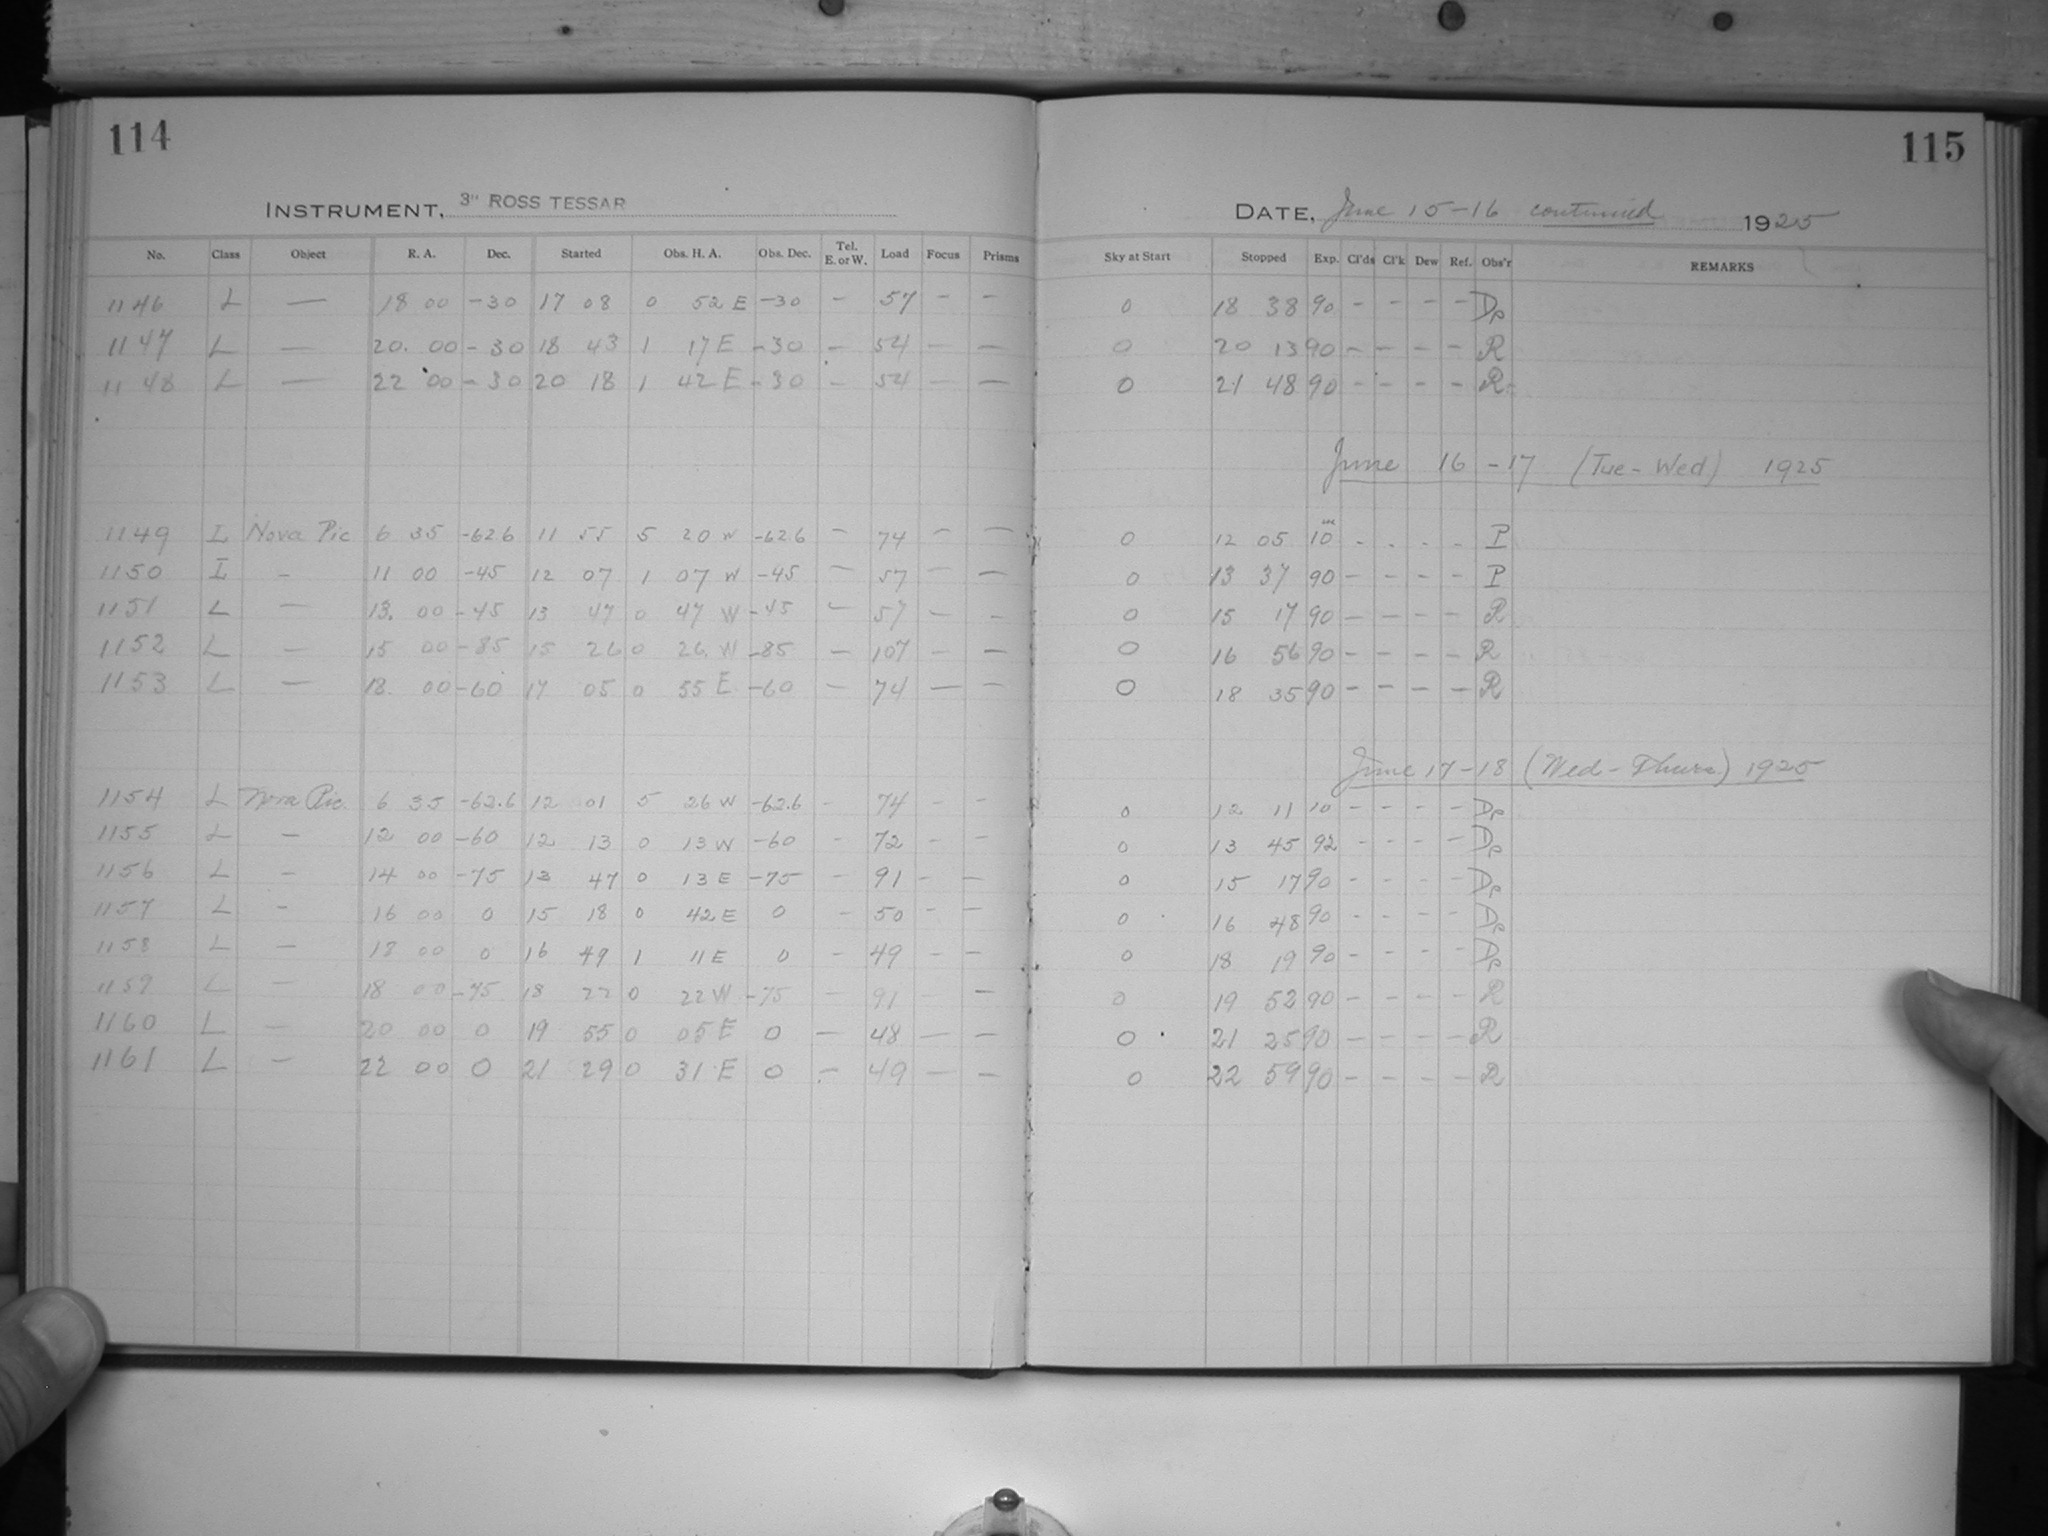 114
INSTRUMENT, 3" ROSS TESSAR
No. Class Object R. A. Dec. Started Obs. H. A. Obs. Dec. Tel. E. or W. Load Focus Prisms
1146 L — 18 00 -30 17 08 0 52 E -30 - 57 - -
1147 L — 20. 00 -30 18 43 1 17 E -30 - 54 - -
1148 L — 22 00 -30 20 18 1 42 E -30 - 54 - -
1149 I Nova Pic 6 35 -62.6 11 55 5 20 W -62.6 - 74 - -
1150 I - 11 00 -45 12 07 1 07 W -45 - 57 - -
1151 L — 13. 00 -45 13 47 0 47 W -45 - 57 - -
1152 L — 15 00 -85 15 26 0 26. W -85 - 107 - -
1153 L — 18. 00 -60 17 05 0 55 E -60 - 74 - -
1154 L Nova Pic 6 35 -62.6 12 01 5 26 W -62.6 - 74 - -
1155 L - 12 00 -60 12 13 0 13 W -60 - 72 - -
1156 L - 14 00 -75 13 47 0 13 E -75 - 91 - -
1157 L - 16 00 0 15 18 0 42 E 0 - 50 - -
1158 L - 18 00 0 16 49 1 11 E 0 - 49 - -
1159 L - 18 00 -75 18 22 0 22 W -75 - 91 - -
1160 L - 20 00 0 19 55 0 05 E 0 - 48 - -
1161 L - 22 00 0 21 29 0 31 E 0 - 49 - -
115
DATE, June 15-16 continued 1925
Sky at Start Stopped Exp. Cl'ds Cl'k Dew Ref. Obs'r REMARKS
0 18 38 90 - - - - De
0 20 13 90 - - - - R
0 21 48 90 - - - - R
June 16-17 (Tue-Wed) 1925
0 12 05 10m - - - - P
0 13 37 90 - - - - P
0 15 17 90 - - - - R
0 16 56 90 - - - - R
0 18 35 90 - - - - R
June 17-18 (Wed-Thurs) 1925
0 12 11 10 - - - - De
0 13 45 92 - - - - De
0 15 17 90 - - - - De
0 16 48 90 - - - - De
0 18 19 90 - - - - De
0 19 52 90 - - - - R
0 21 25 90 - - - - R
0 22 59 90 - - - - R